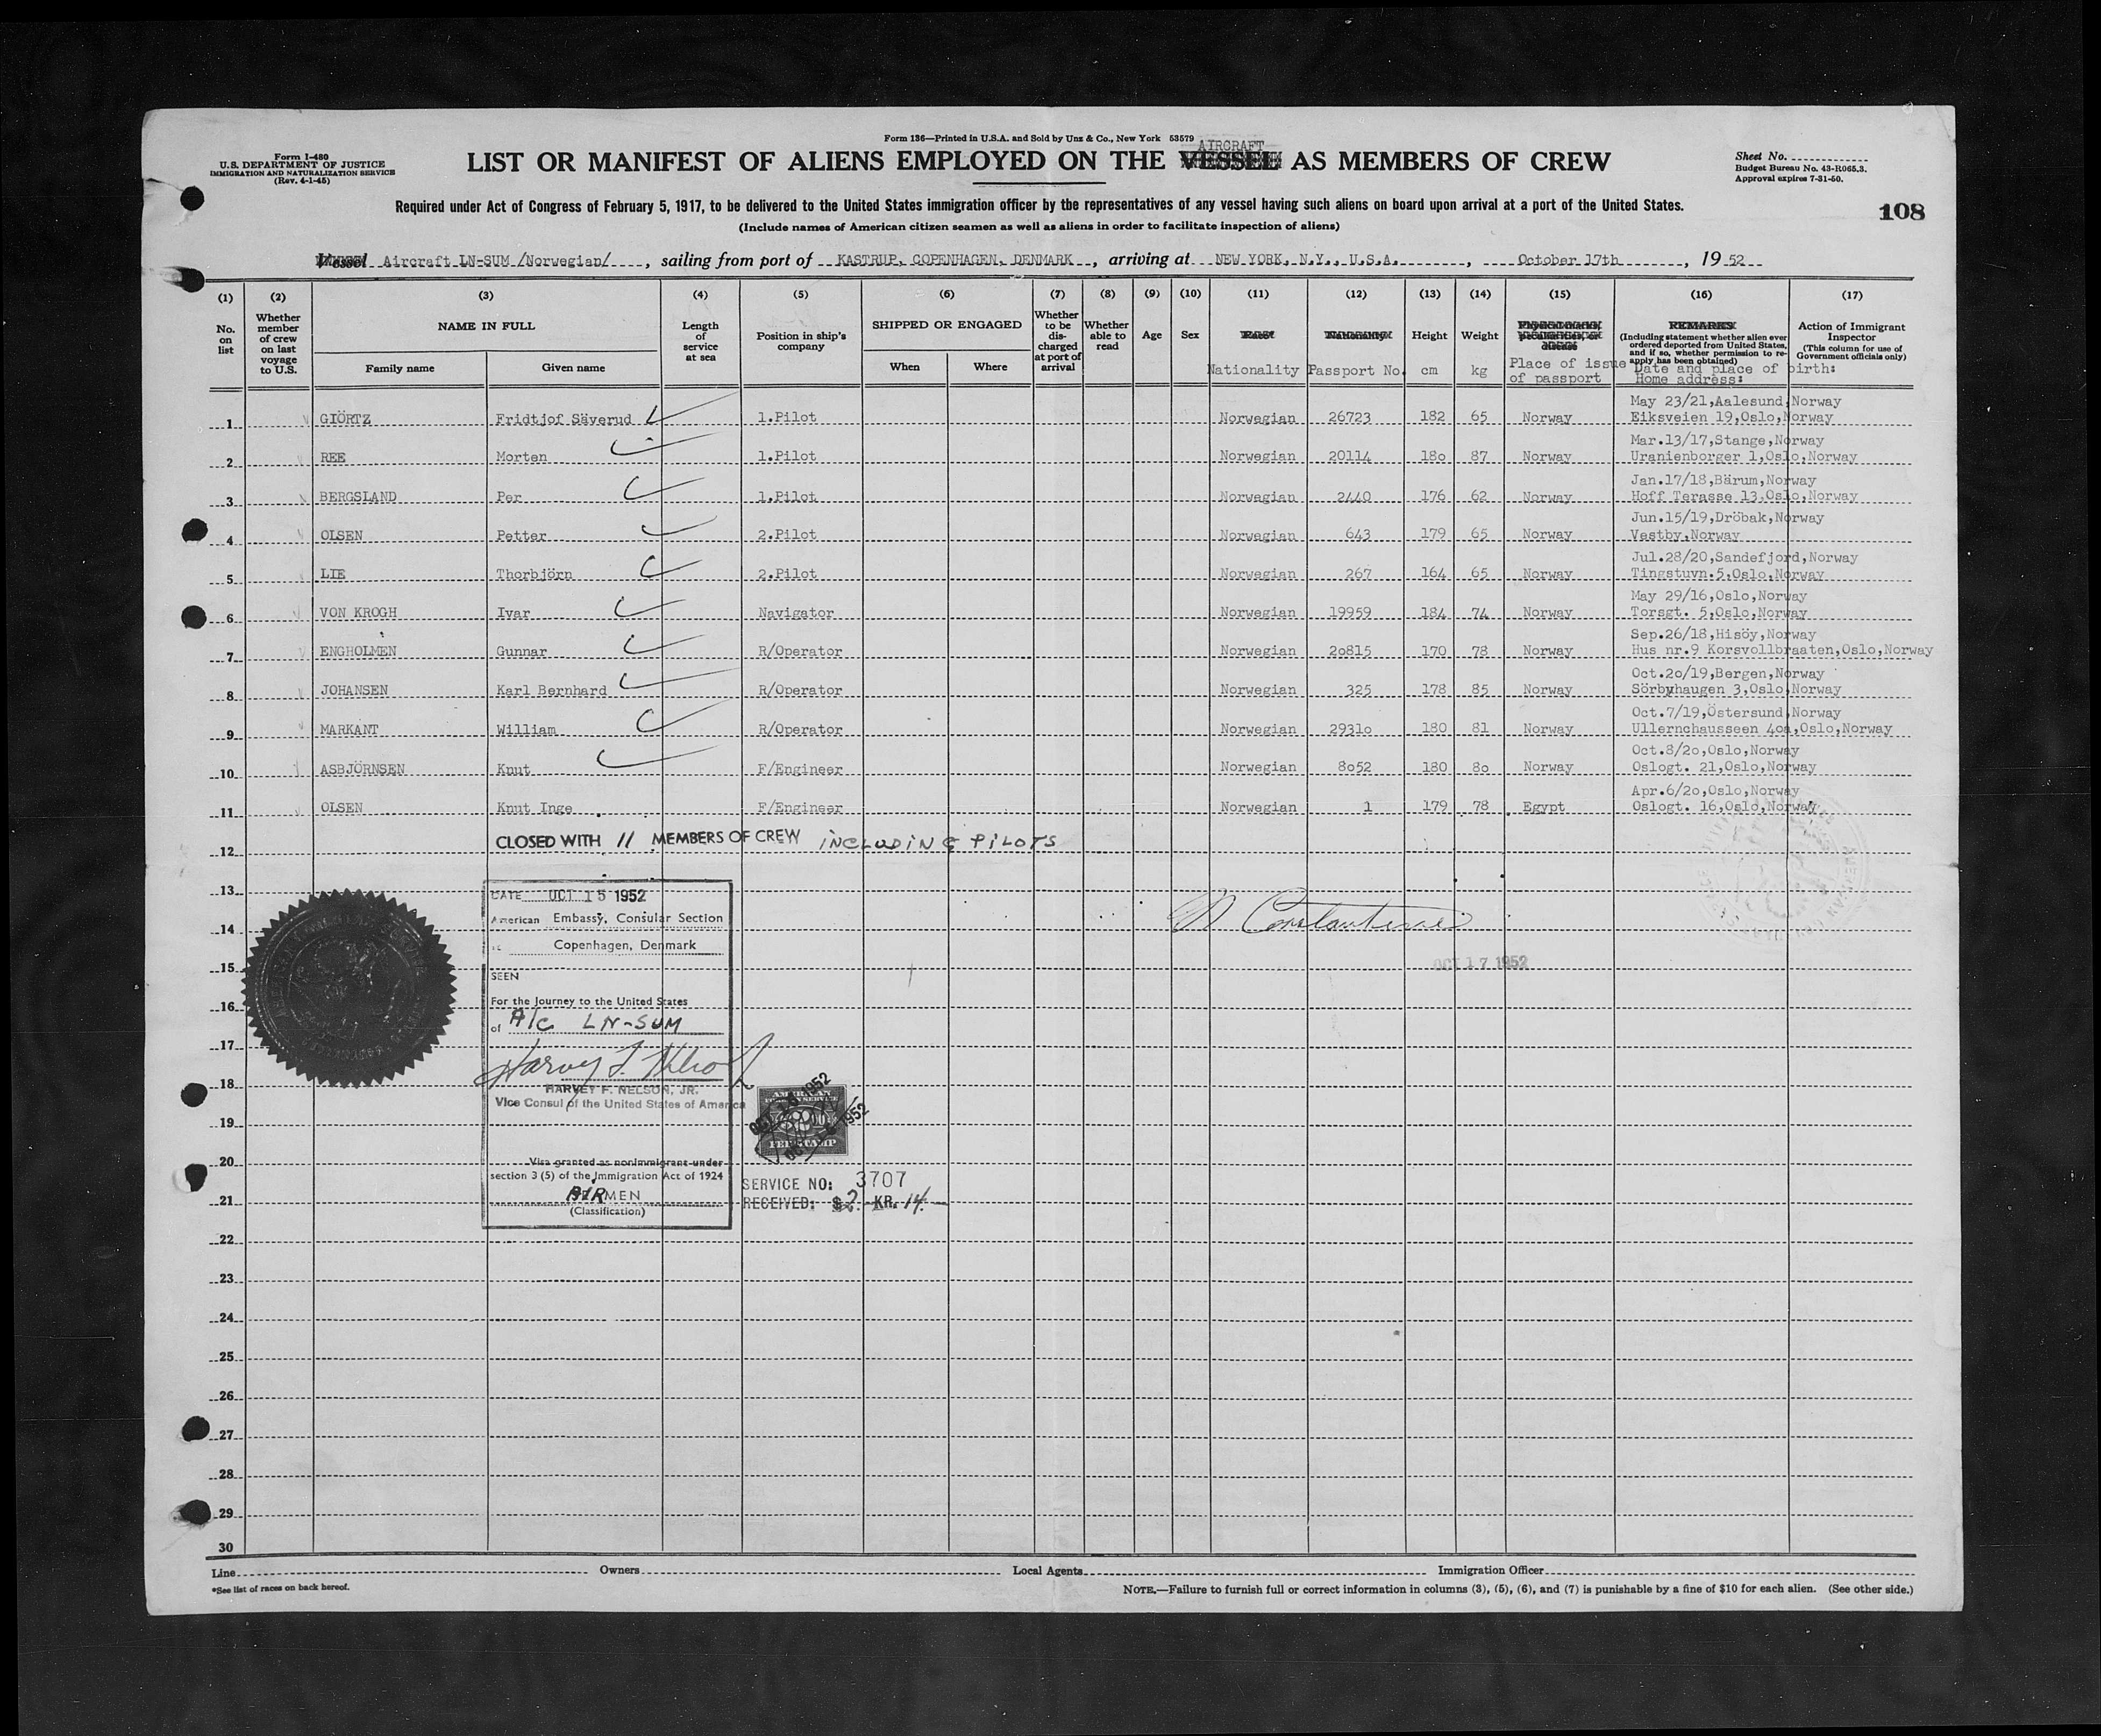 Form 136—Printed in U.S.A. and Sold by Unz & Co., New York 53579
Form I-480
U.S. DEPARTMENT OF JUSTICE
IMMIGRATION AND NATURALIZATION SERVICE
(Rev. 4-1-45)
AIRCRAFT
LIST OR MANIFEST OF ALIENS EMPLOYED ON THE VESSEL AS MEMBERS OF CREW
Sheet No.
Budget Bureau No. 43-R065.3.
Approval expires 7-31-50.
Required under Act of Congress of February 5, 1917, to be delivered to the United States immigration officer by the representatives of any vessel having such aliens on board upon arrival at a port of the United States.
108
(Include names of American citizen seamen as well as aliens in order to facilitate inspection of aliens)
Vessel Aircraft LN-SUM /Norwegian/ , sailing from port of KASTRUP, COPENHAGEN, DENMARK , arriving at NEW YORK, N.Y., U.S.A. , October 17th , 19 52
(1) (2) (3) (4) (5) (6) (7) (8) (9) (10) (11) (12) (13) (14) (15) (16) (17)
No. on list
Whether member of crew on last voyage to U.S.
NAME IN FULL
Family name
Given name
Length of service at sea
Position in ship's company
SHIPPED OR ENGAGED
When
Where
Whether to be discharged at port of arrival
Whether able to read
Age
Sex
Nationality
Passport No.
Height cm
Weight kg
Place of issue of passport
REMARKS
(Including statement whether alien ever ordered deported from United States, and if so, whether permission to reapply has been obtained)
Date and place of birth:
Home address:
Action of Immigrant Inspector
(This column for use of Government officials only)
May 23/21,Aalesund,Norway
1 GIÖRTZ Fridtjof Säverud 1.Pilot Norwegian 26723 182 65 Norway Eiksveien 19,Oslo,Norway
Mar.13/17,Stange,Norway
2 REE Morten 1.Pilot Norwegian 20114 18o 87 Norway Uranienborger 1,Oslo,Norway
Jan.17/18,Bärum,Norway
3 BERGSLAND Per 1.Pilot Norwegian 2440 176 62 Norway Hoff Terasse 13,Oslo,Norway
Jun.15/19,Dröbak,Norway
4 OLSEN Petter 2.Pilot Norwegian 643 179 65 Norway Vestby,Norway
Jul.28/20,Sandefjord,Norway
5 LIE Thorbjörn 2.Pilot Norwegian 267 164 65 Norway Tingstuvn.5,Oslo,Norway
May 29/16,Oslo,Norway
6 VON KROGH Ivar Navigator Norwegian 19959 184 74 Norway Torsgt. 5,Oslo,Norway
Sep.26/18,Hisöy,Norway
7 ENGHOLMEN Gunnar R/Operator Norwegian 2o815 170 78 Norway Hus nr.9 Korsvollbraaten,Oslo,Norway
Oct.2o/19,Bergen,Norway
8 JOHANSEN Karl Bernhard R/Operator Norwegian 325 178 85 Norway Sörbyhaugen 3,Oslo,Norway
Oct.7/19,Östersund,Norway
9 MARKANT William R/Operator Norwegian 2931o 180 81 Norway Ullernchausseen 4oa,Oslo,Norway
Oct.8/2o,Oslo,Norway
10 ASBJÖRNSEN Knut F/Engineer Norwegian 8o52 180 8o Norway Oslogt. 21,Oslo,Norway
Apr.6/2o,Oslo,Norway
11 OLSEN Knut Inge F/Engineer Norwegian 1 179 78 Egypt Oslogt. 16,Oslo,Norway
CLOSED WITH 11 MEMBERS OF CREW INCLUDING PILOTS
12
13
DATE OCT 15 1952
American Embassy, Consular Section
14
Copenhagen, Denmark
15
OCT 17 1952
SEEN
For the Journey to the United States
16
of A/c LN-SUM
17
18
HARVEY F. NELSON, JR.
Vice Consul of the United States of America
AMERICAN
FOREIGN SERVICE
FEE STAMP
19
20
Visa granted as nonimmigrant under
section 3 (5) of the Immigration Act of 1924
AIRMEN
(Classification)
SERVICE NO: 3707
RECEIVED: $2. KR. 14.
21
22
23
24
25
26
27
28
29
30
Line Owners Local Agents Immigration Officer
*See list of races on back hereof.
NOTE.—Failure to furnish full or correct information in columns (3), (5), (6), and (7) is punishable by a fine of $10 for each alien. (See other side.)